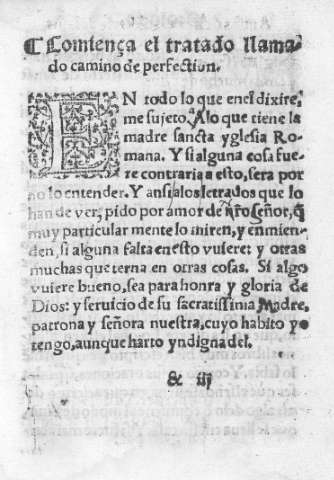 ☾ Comiença el tratado llama-
do camino de perfection.
EN todo lo que enel dixire,
me sujeto. Alo que tiene la
madre sancta yglesia Ro-
mana. Y si alguna cosa fue-
re contraria a esto, sera por
no lo entender. Y ansi alos letrados que lo
han de ver, pido por amor de ñro Señor, q̃
muy particular mente lo miren, y enmien-
den, si alguna falta enesto vuiere: y otras
muchas que terna en otras cosas. Si algo
vuiere bueno, sea para honra y gloria de
Dios: y seruicio de su sacratissinia Madre,
patrona y señora nuestra, cuyo habito yo
tengo, aunque harto yndigna del.
& iij